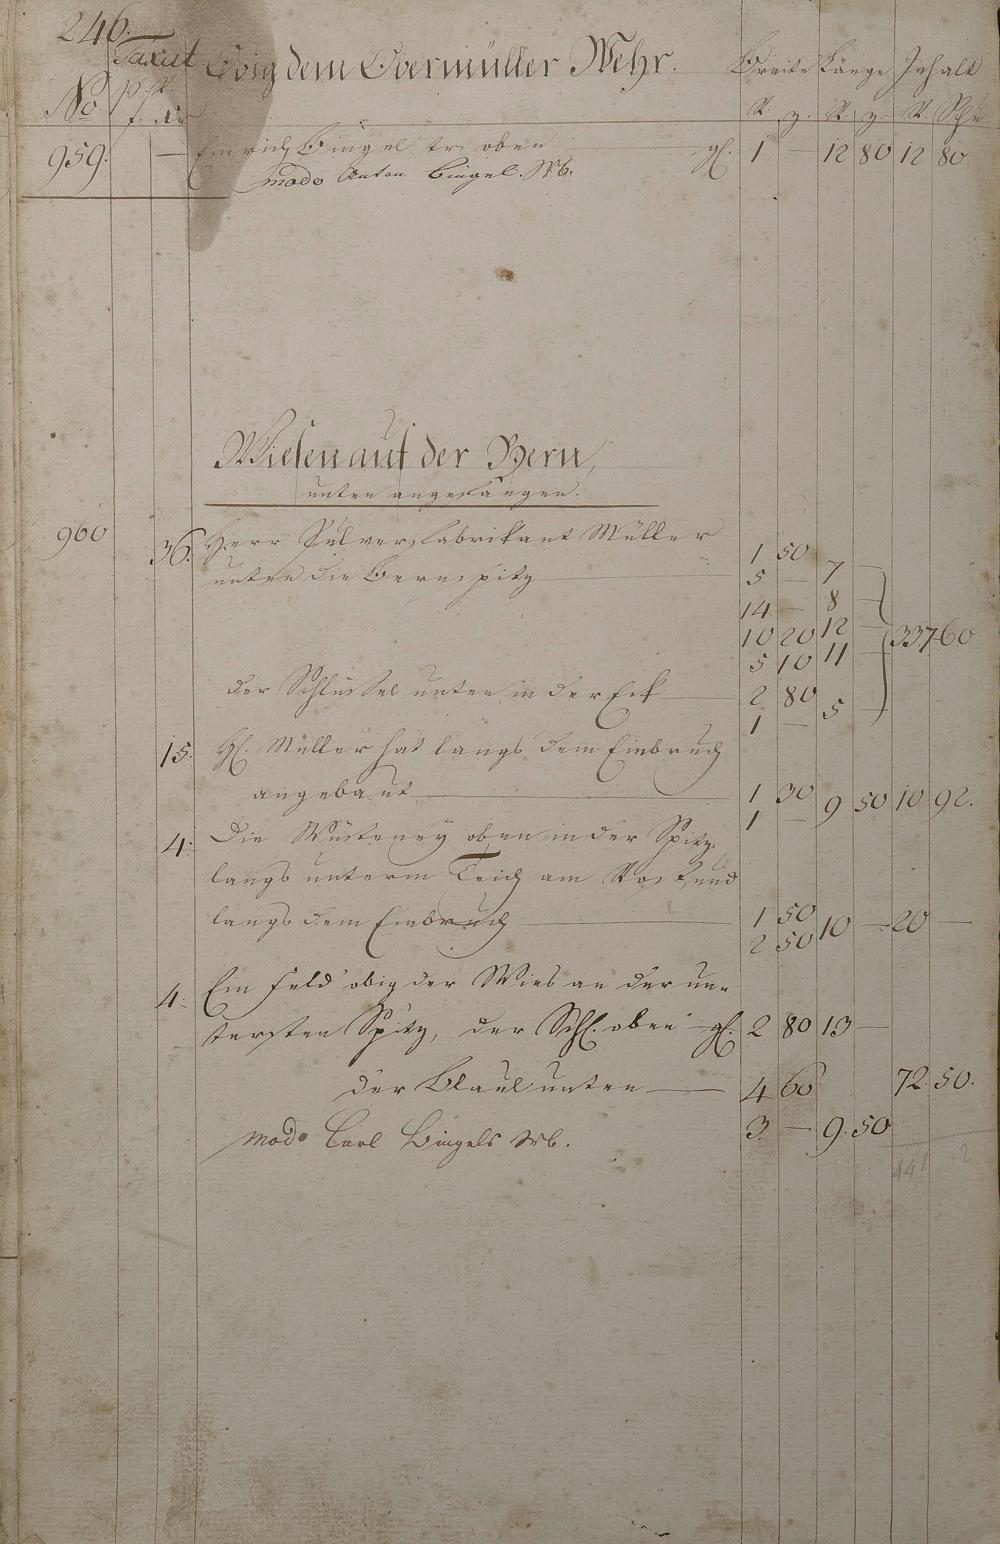 246.
Taxat Obig dem Obermüller Wehr. Breite Länge Inhalt
No p. R. R. z. R. z. R. Schu
f. xr
959. — Emrich Bingel tr. oben gl. 1 — 12 80 12 80.
modo Anton Bingel. Wb.
Wiesen auf der Bern,
unten angefangen.
960 36. Herr Pulverfabrikant Müller
unten die Bernspitz 1 50
5 — 7 —
14 — 8 —
10 20 12 — 337 60
5 10 11 —
der Schlüssel unten in der Eck 2 80
1 — 5 —
15. H. Müller hat langs dem Einbruch
angebaut 1 30 9 50 10 92.
1 —
4. Die Wüsteney oben in der Spitz,
langs unterm Teich am und
langs dem Einbruch 1 50 10 — 20 —
2 50
4. Ein Feld obig der Wies an der un-
tersten Spitz, der Schl. oben gl. 2 80 13 —
der Blaul unten 4 60 72. 50.
modo Carl Bingels Wb. 3. — 9. 50
441 2